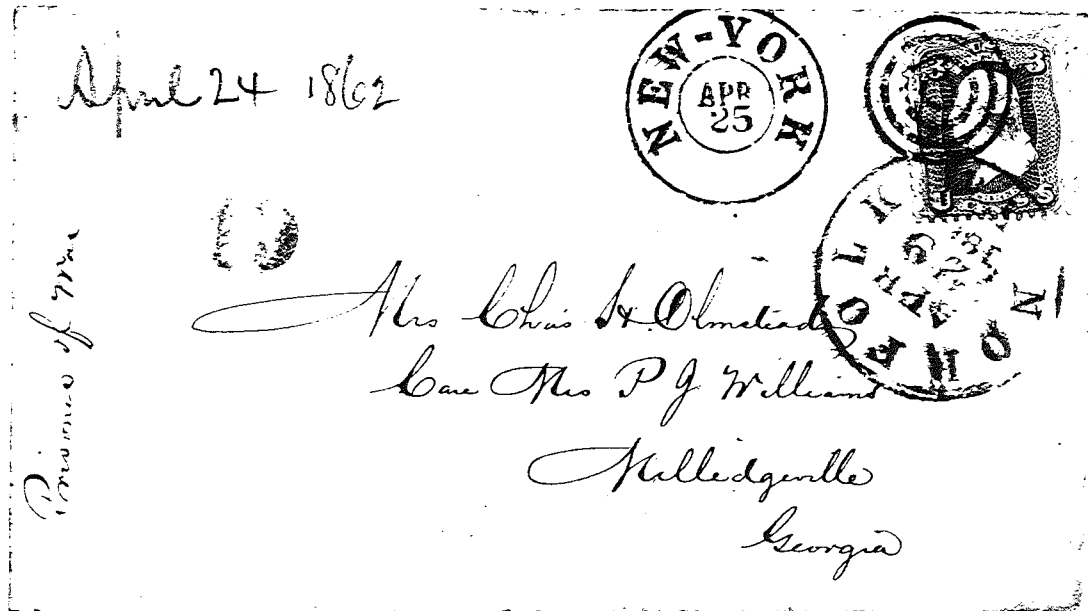 April 24 1862
NEW-YORK
APR
25
NORFOLK
APR
Prisoner of War
Mrs Chas H. Olmstead
Care Mrs P J Williams
Milledgeville
Georgia